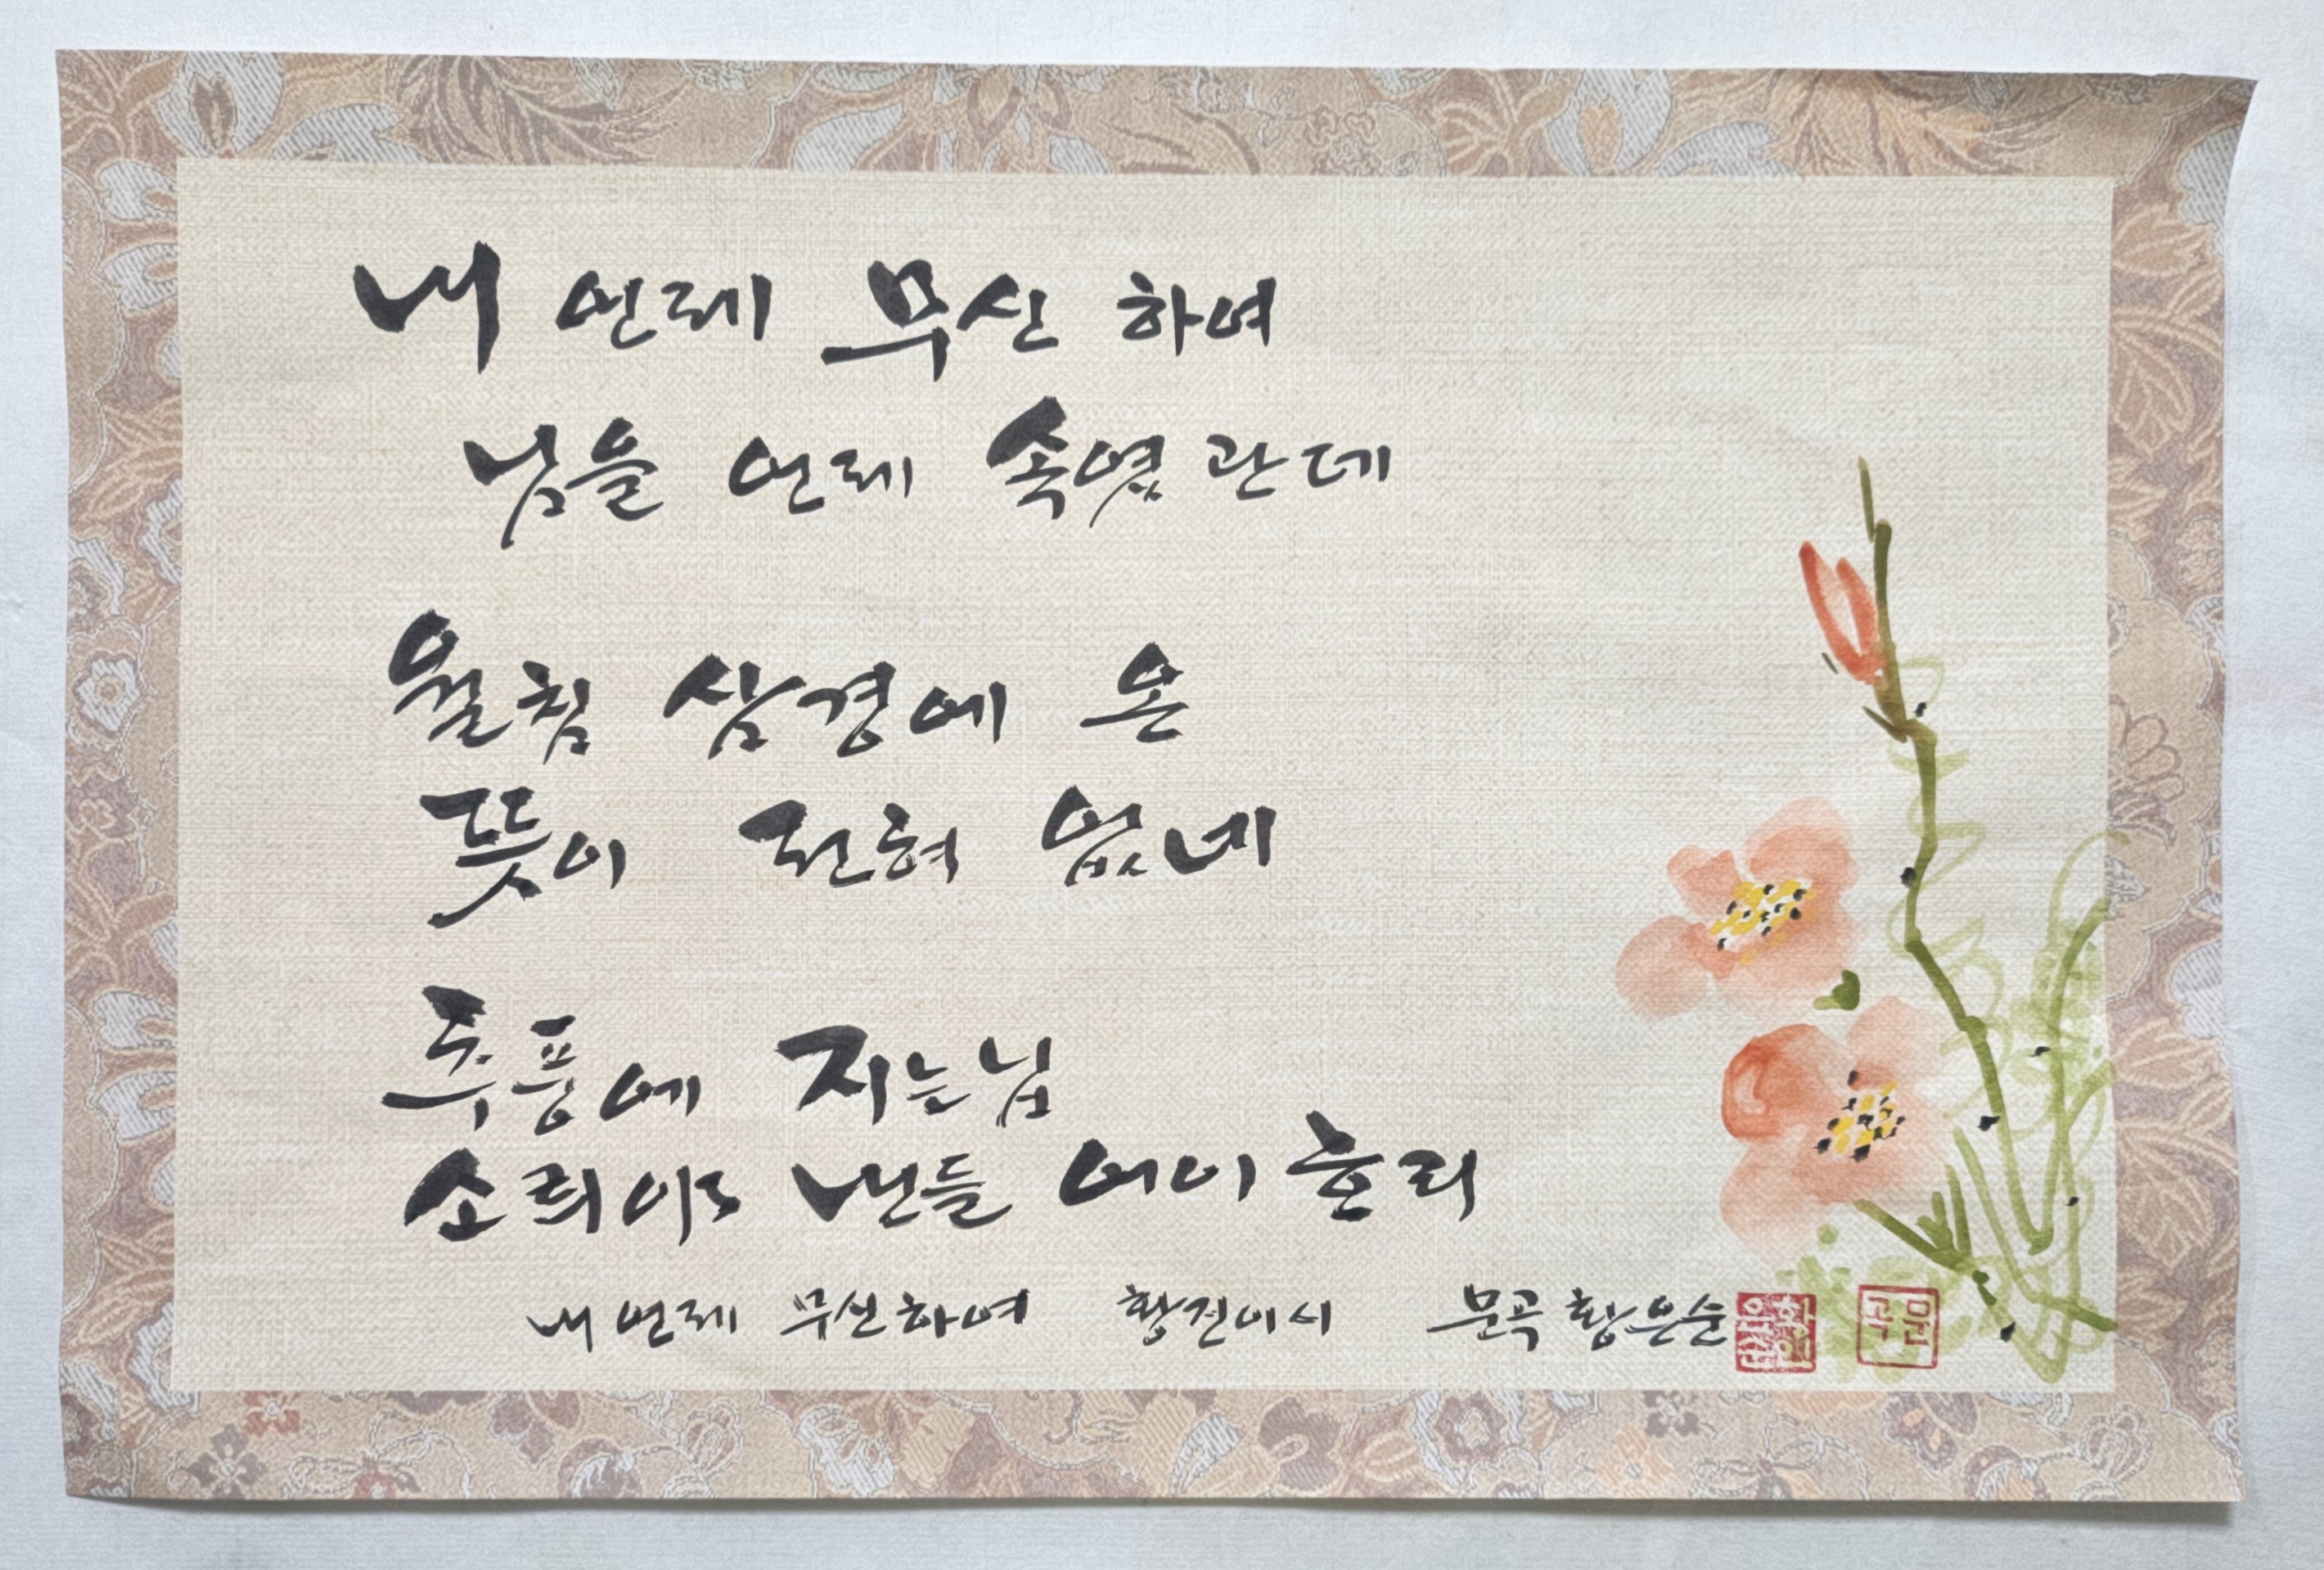 내 언제 무신 하여
님을 언제 속였관데
월침 삼경에 온
뜻이 전혀 없네
추풍에 지는 님
소릐야 낸들 어이 흐리
내 언제 무신하여 황진이 시 문곡 황은순
황인 은순
문곡